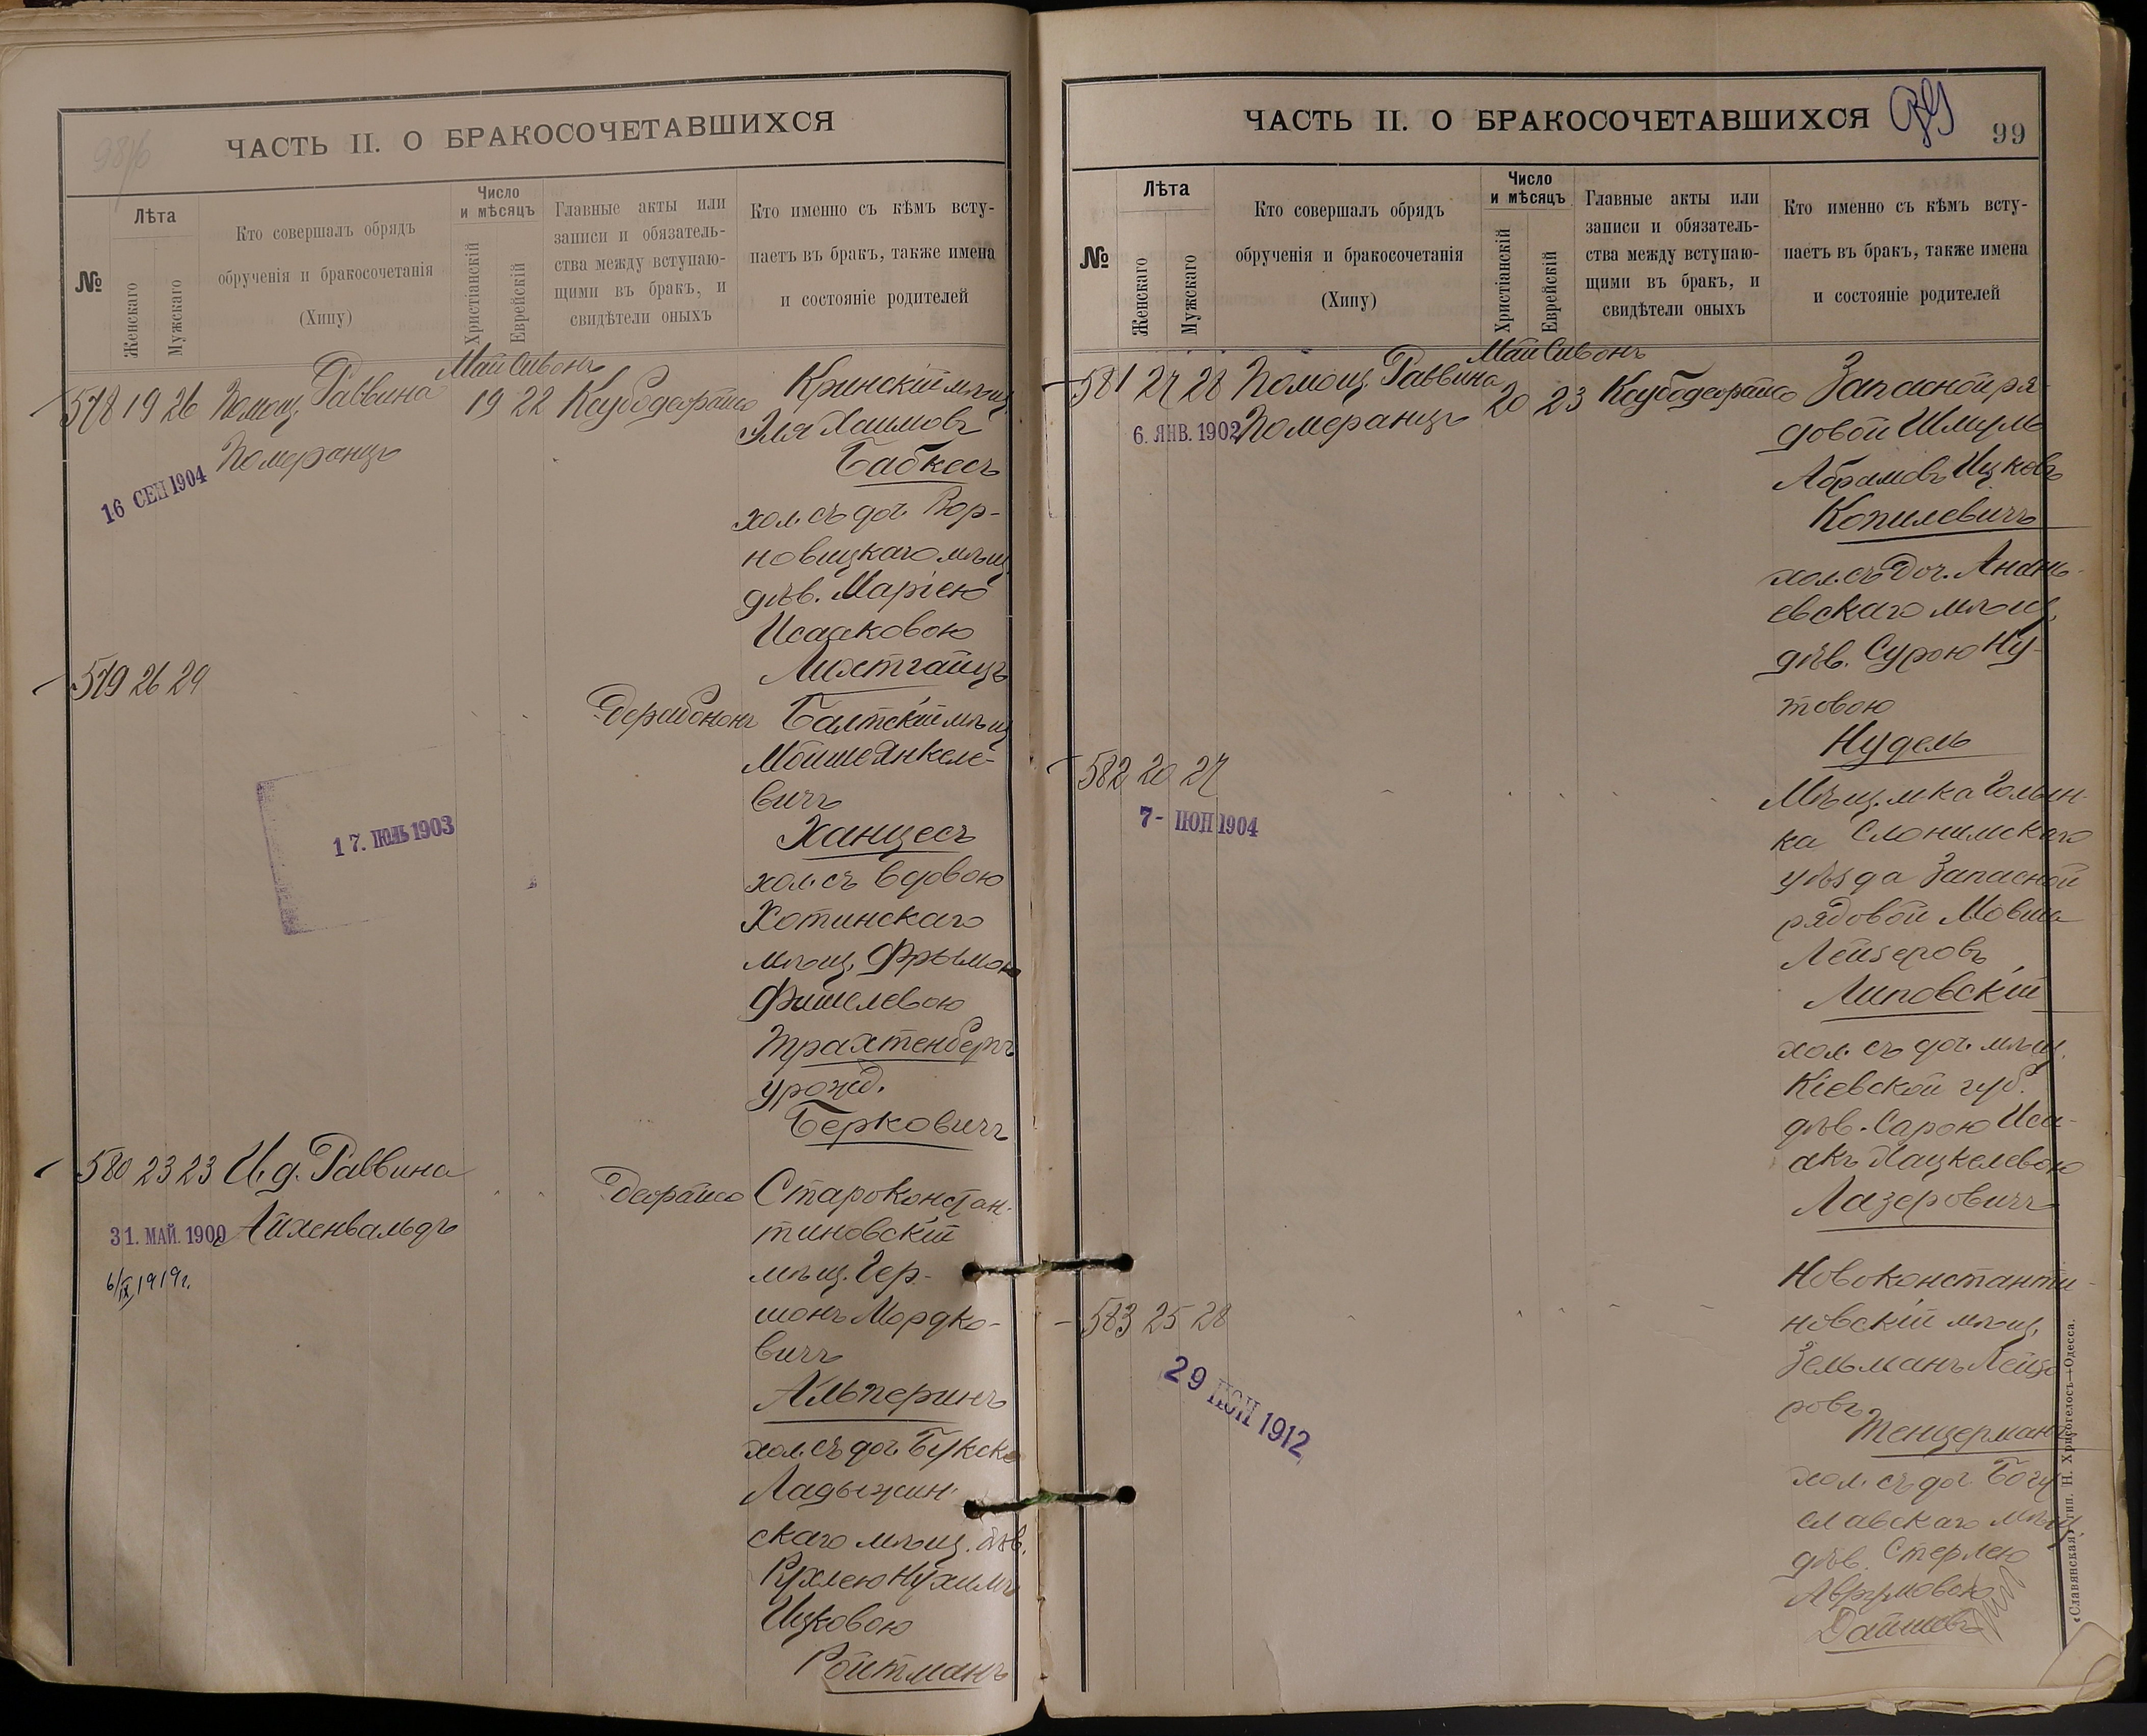 ЧАСТЬ II. О БРАКОСОЧЕТАВШИХСЯ
№
Лѣта
Женскаго
Мужскаго
Кто совершалъ обрядъ
обрученія и бракосочетанія
(Хипу)
Число
и мѣсяцъ
Христіанскій
Еврейскій
Главные акты или
записи и обязатель-
ства между вступаю-
щими въ бракъ, и
свидѣтели оныхъ
Кто именно съ кѣмъ всту-
паетъ въ бракъ, также имена
и состояніе родителей
Май Сивонъ
578 19 26 Помощ. Раввина 19 22
Померанцъ
16 СЕН 1904
Кринскій мѣщ.
Эля Хаимовъ
Бабкесъ
хол. съ доч. Вор-
новицкаго мѣщ.
дѣв. Маріею
Исааковою
Лихтгайцъ
579 26 29
17. ІЮЛЬ 1903
Балтскій мѣщ.
Мойше Янкеле-
вичъ
Ханцесъ
хол. съ вдовою
Хотинскаго
мѣщ. Фрымою
Фишелевою
Трахтенбергъ
урожд.
Берковичъ
580 23 23 И. д. Раввина
Айхенвальдъ
31. МАЙ. 1900
6/IX 1919 г.
Староконстан-
тиновскій
мѣщ. Гер-
шонъ Мордко-
вичъ
Альперинъ
хол. съ доч. Букско
Ладыжин-
скаго мѣщ. дѣв.
Рухлею Нухимъ
Ицковою
Ройтманъ
ЧАСТЬ II. О БРАКОСОЧЕТАВШИХСЯ
99
№
Лѣта
Женскаго
Мужскаго
Кто совершалъ обрядъ
обрученія и бракосочетанія
(Хипу)
Число
и мѣсяцъ
Христіанскій
Еврейскій
Главные акты или
записи и обязатель-
ства между вступаю-
щими въ бракъ, и
свидѣтели оныхъ
Кто именно съ кѣмъ всту-
паетъ въ бракъ, также имена
и состояніе родителей
Май Сивонъ
581 27 28 Помощ. Раввина 20 23
Померанцъ
6. ЯНВ. 1902
Запасной ря-
довой Шмуль
Абрамовъ Ицковъ
Копилевичъ
хол. съ доч. Анань-
евскаго мѣщ.
дѣв. Сурою Ну-
товою
Нудель
582 20 27
7- ІЮН 1904
Мѣщ. м-ка Голын-
ка Слонимскаго
уѣзда Запасной
рядовой Мовша
Лейзеровъ
Липовскій
хол. съ доч. мѣщ.
Кіевской губ.
дѣв. Сарою Иса-
акъ Хацкелевою
Лазеровичъ
583 25 28
29 ІЮН 1912
Новоконстанти-
новскій мѣщ.
Зельманъ Лейзе
ровъ
Тенцерманъ
хол. съ доч. Богу
славскаго мѣщ.
дѣв. Стерлею
Аврумовою
«Славянская» тип. Н. Хрисогелосъ—Одесса.